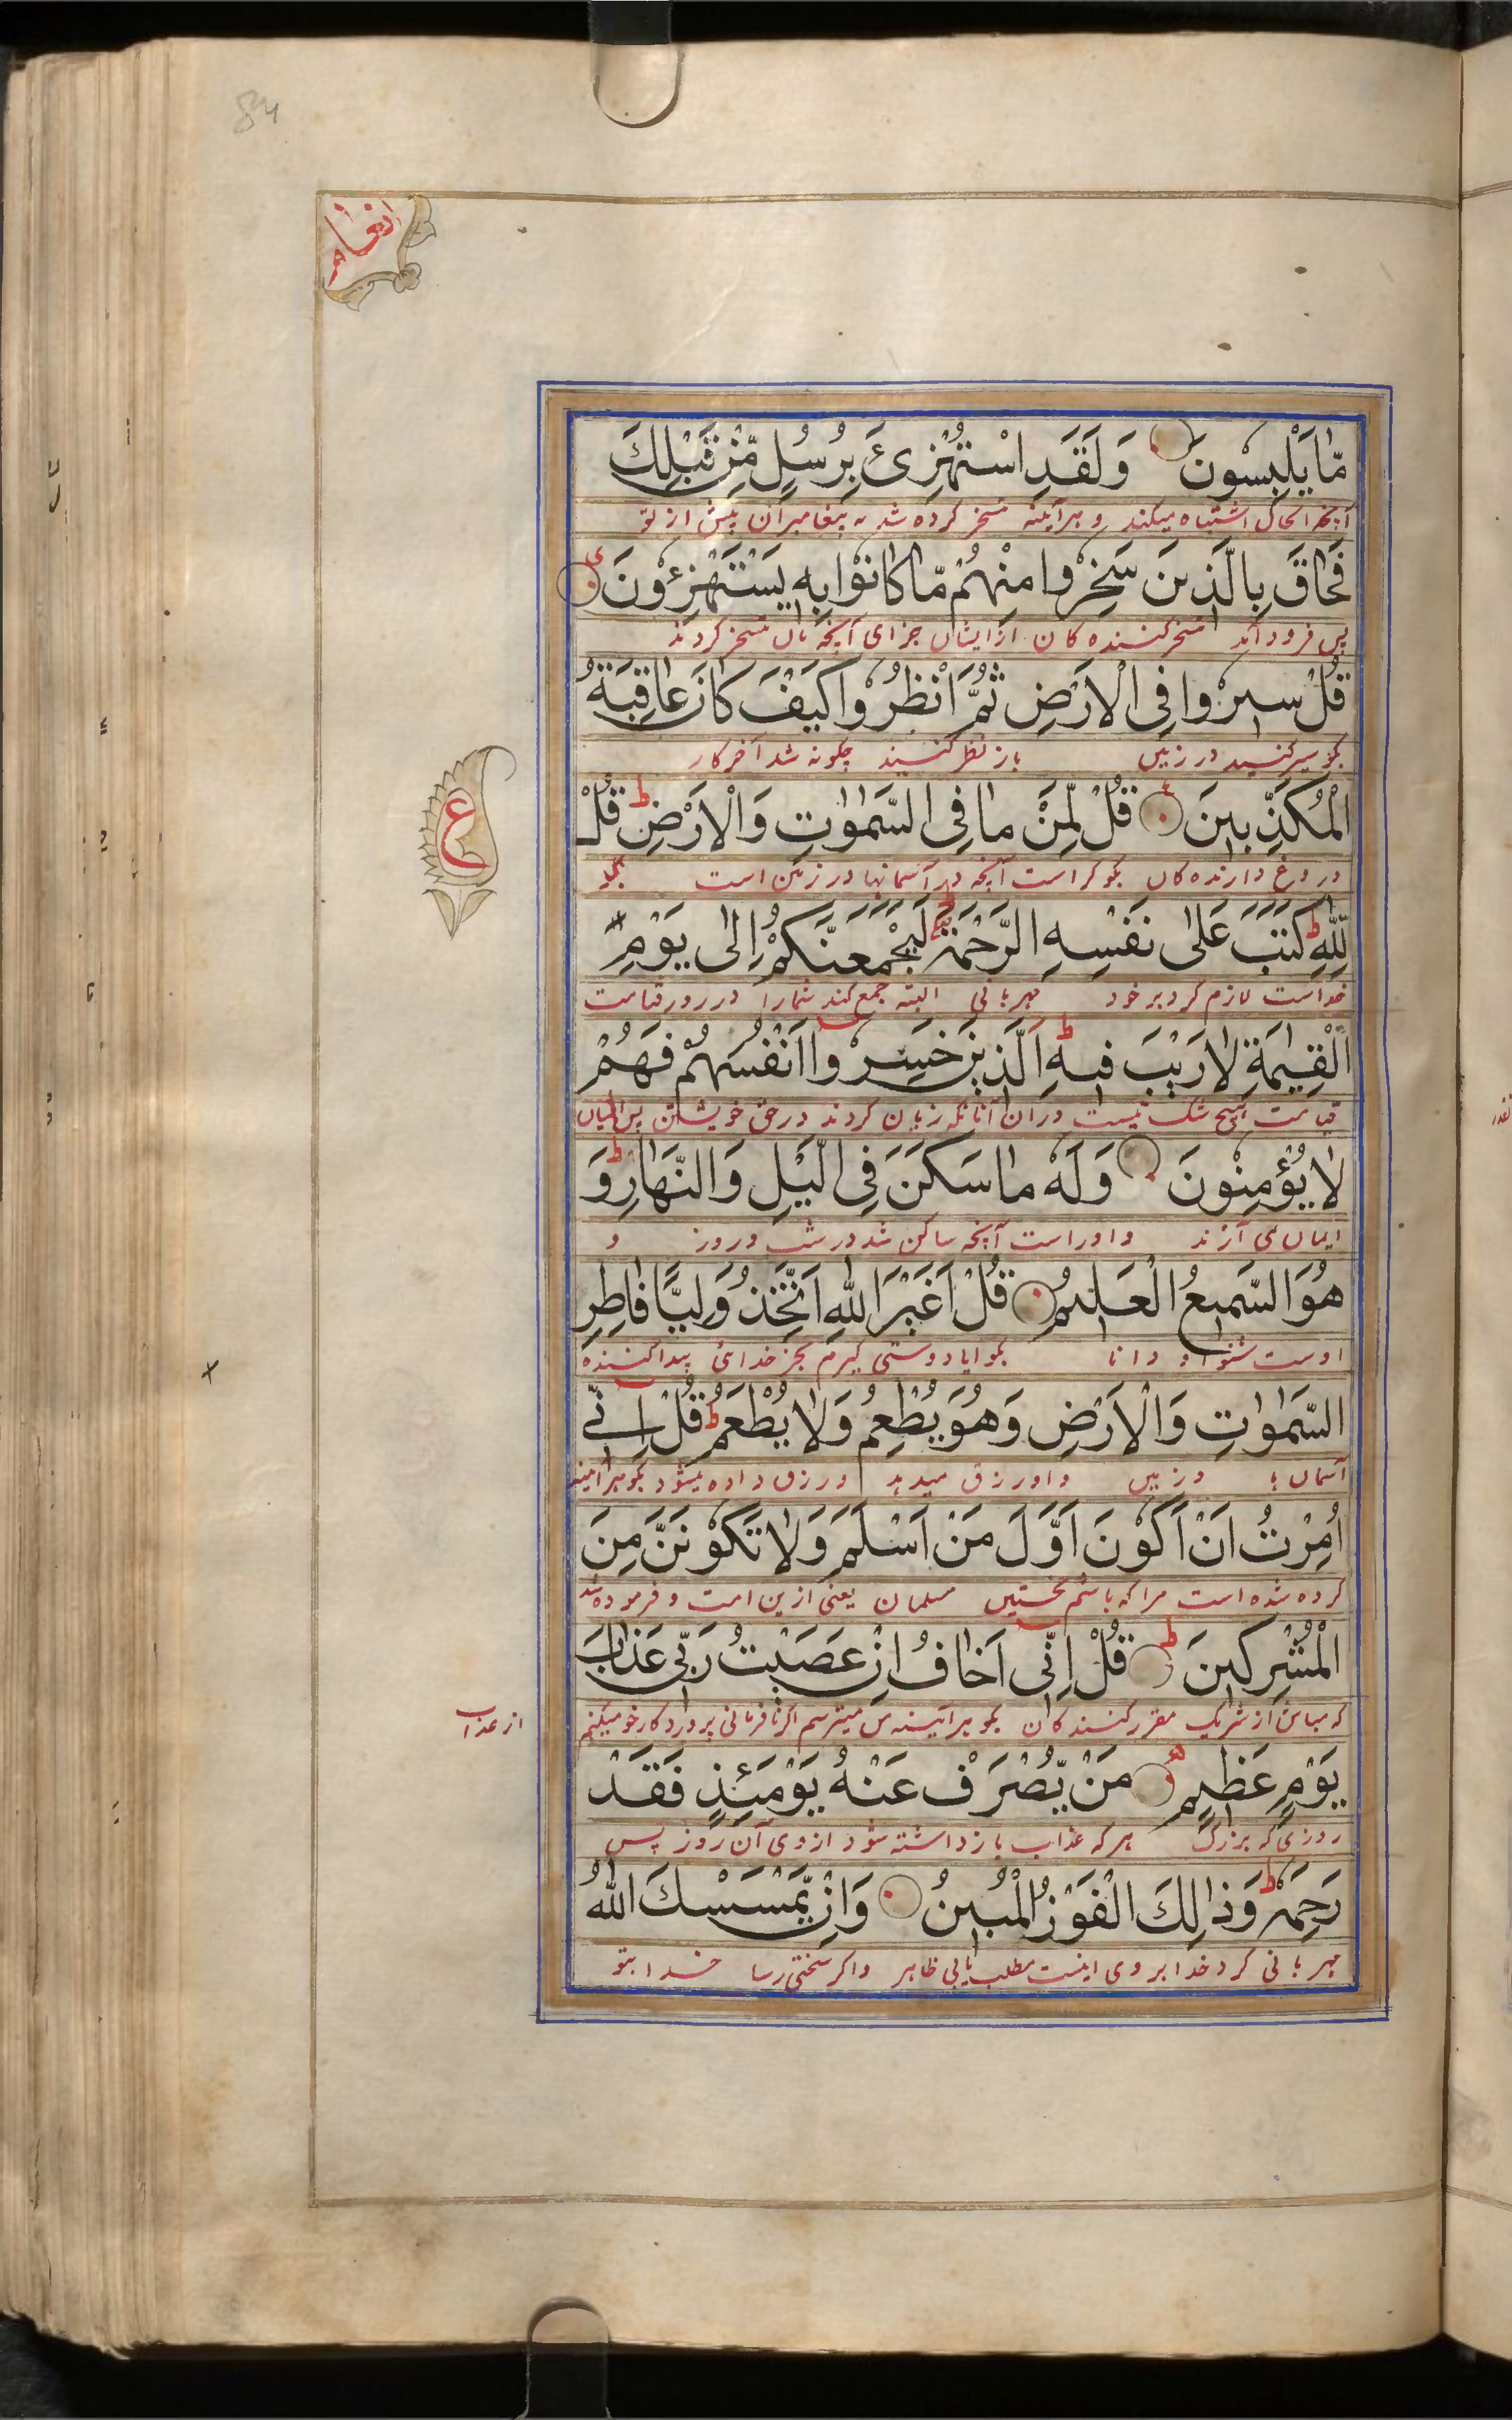 انعام
مَّا يَلْبِسُونَ وَلَقَدِ اسْتُهْزِئَ بِرُسُلٍ مِّنْ قَبْلِكَ
آنچه الحال اشتباه میکنند و هرآینه تمسخر کرده شد به پیغامبران پیش از تو
فَحَاقَ بِالَّذِينَ سَخِرُوا مِنْهُمْ مَّا كَانُوْا بِهٖ يَسْتَهْزِءُوْنَ
پس فرود آمد تمسخر کننده کان از ایشان جزای آنچه بآن تمسخر کردند
قُلْ سِيرُوا فِي الْاَرْضِ ثُمَّ انْظُرُوا كَيْفَ كَانَ عَاقِبَةُ
بکو سیر کنید در زمین باز نظر کنید چکونه شد آخر کار
الْمُكَذِّبِينَ قُلْ لِّمَنْ مَا فِي السَّمٰوٰتِ وَالْاَرْضِ قُلْ
دروغ دارنده کان بکو کراست آنچه در آسمانها و زمین است بکو
ع
لِلّٰهِ كَتَبَ عَلٰى نَفْسِهِ الرَّحْمَةَ لَيَجْمَعَنَّكُمْ اِلٰى يَوْمِ
خداست لازم کرد بر خود مهربانی البته جمع کند شمارا در روز قیامت
الْقِيٰمَةِ لَا رَيْبَ فِيهِ اَلَّذِينَ خَسِرُوا اَنْفُسَهُمْ فَهُمْ
قیامت هیچ شک نیست دران آنانکه زیان کردند در حق خویشتن پس ایشان
لَا يُؤْمِنُونَ وَلَهٗ مَا سَكَنَ فِي الَّيْلِ وَالنَّهَارِ وَ
ایمان نمی آرند و اوراست آنچه ساکن شد در شب و روز و
هُوَ السَّمِيعُ الْعَلِيمُ قُلْ اَغَيْرَ اللّٰهِ اَتَّخِذُ وَلِيًّا فَاطِرِ
اوست شنوا و دانا بکو ایا دوستی کیرم بجز خدائی پیدا کننده
السَّمٰوٰتِ وَالْاَرْضِ وَهُوَ يُطْعِمُ وَلَا يُطْعَمُ قُلْ اِنِّي
آسمان ها و زمین و او رزق میدهد و رزق داده نمیشود بکو هرآینه
اُمِرْتُ اَنْ اَكُوْنَ اَوَّلَ مَنْ اَسْلَمَ وَلَا تَكُوْنَنَّ مِنَ
کرده شده است مرا که باشم نخستین مسلمان یعنی ازین امت و فرموده شد
الْمُشْرِكِينَ قُلْ اِنِّي اَخَافُ اِنْ عَصَيْتُ رَبِّي عَذَابَ
که مباش از شریک مقرر کنندکان بکو هرآینه من میترسم اکر نافرمانی پروردکار خود میکنم
از عذاب
يَوْمٍ عَظِيمٍ مَنْ يُّصْرَفْ عَنْهُ يَوْمَئِذٍ فَقَدْ
روزی که بزرک هرکه عذاب بازداشته شود از وی آن روز پس
رَحِمَهٗ وَذَالِكَ الْفَوْزُ الْمُبِينُ وَاِنْ يَّمْسَسْكَ اللّٰهُ
مهربانی کرد خدا بر وی اینست مطلب یابی ظاهر و اکر سختی رسا خدا بتو